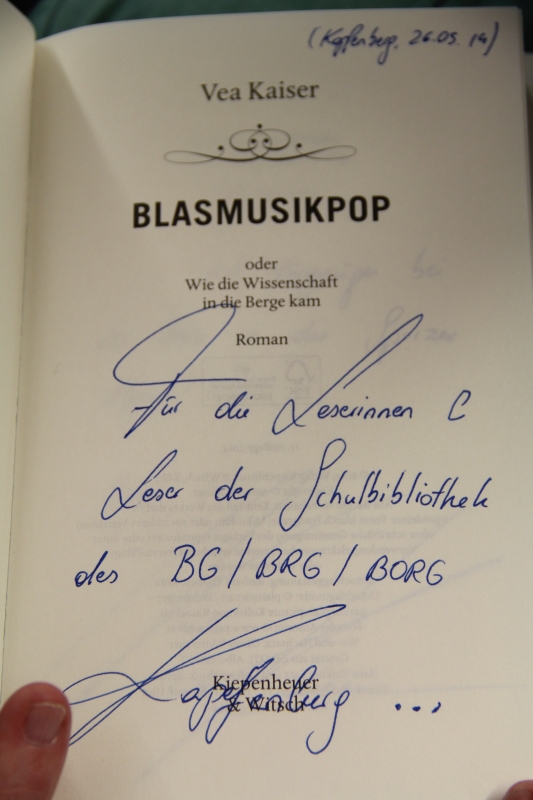 (Kapfenberg, 26.05.14)
Vea Kaiser
BLASMUSIKPOP
oder
Wie die Wissenschaft
in die Berge kam
Roman
Für die Leserinnen &
Leser der Schulbibliothek
des BG / BRG / BORG
Kapfenberg ...
Kiepenheuer
& Witsch